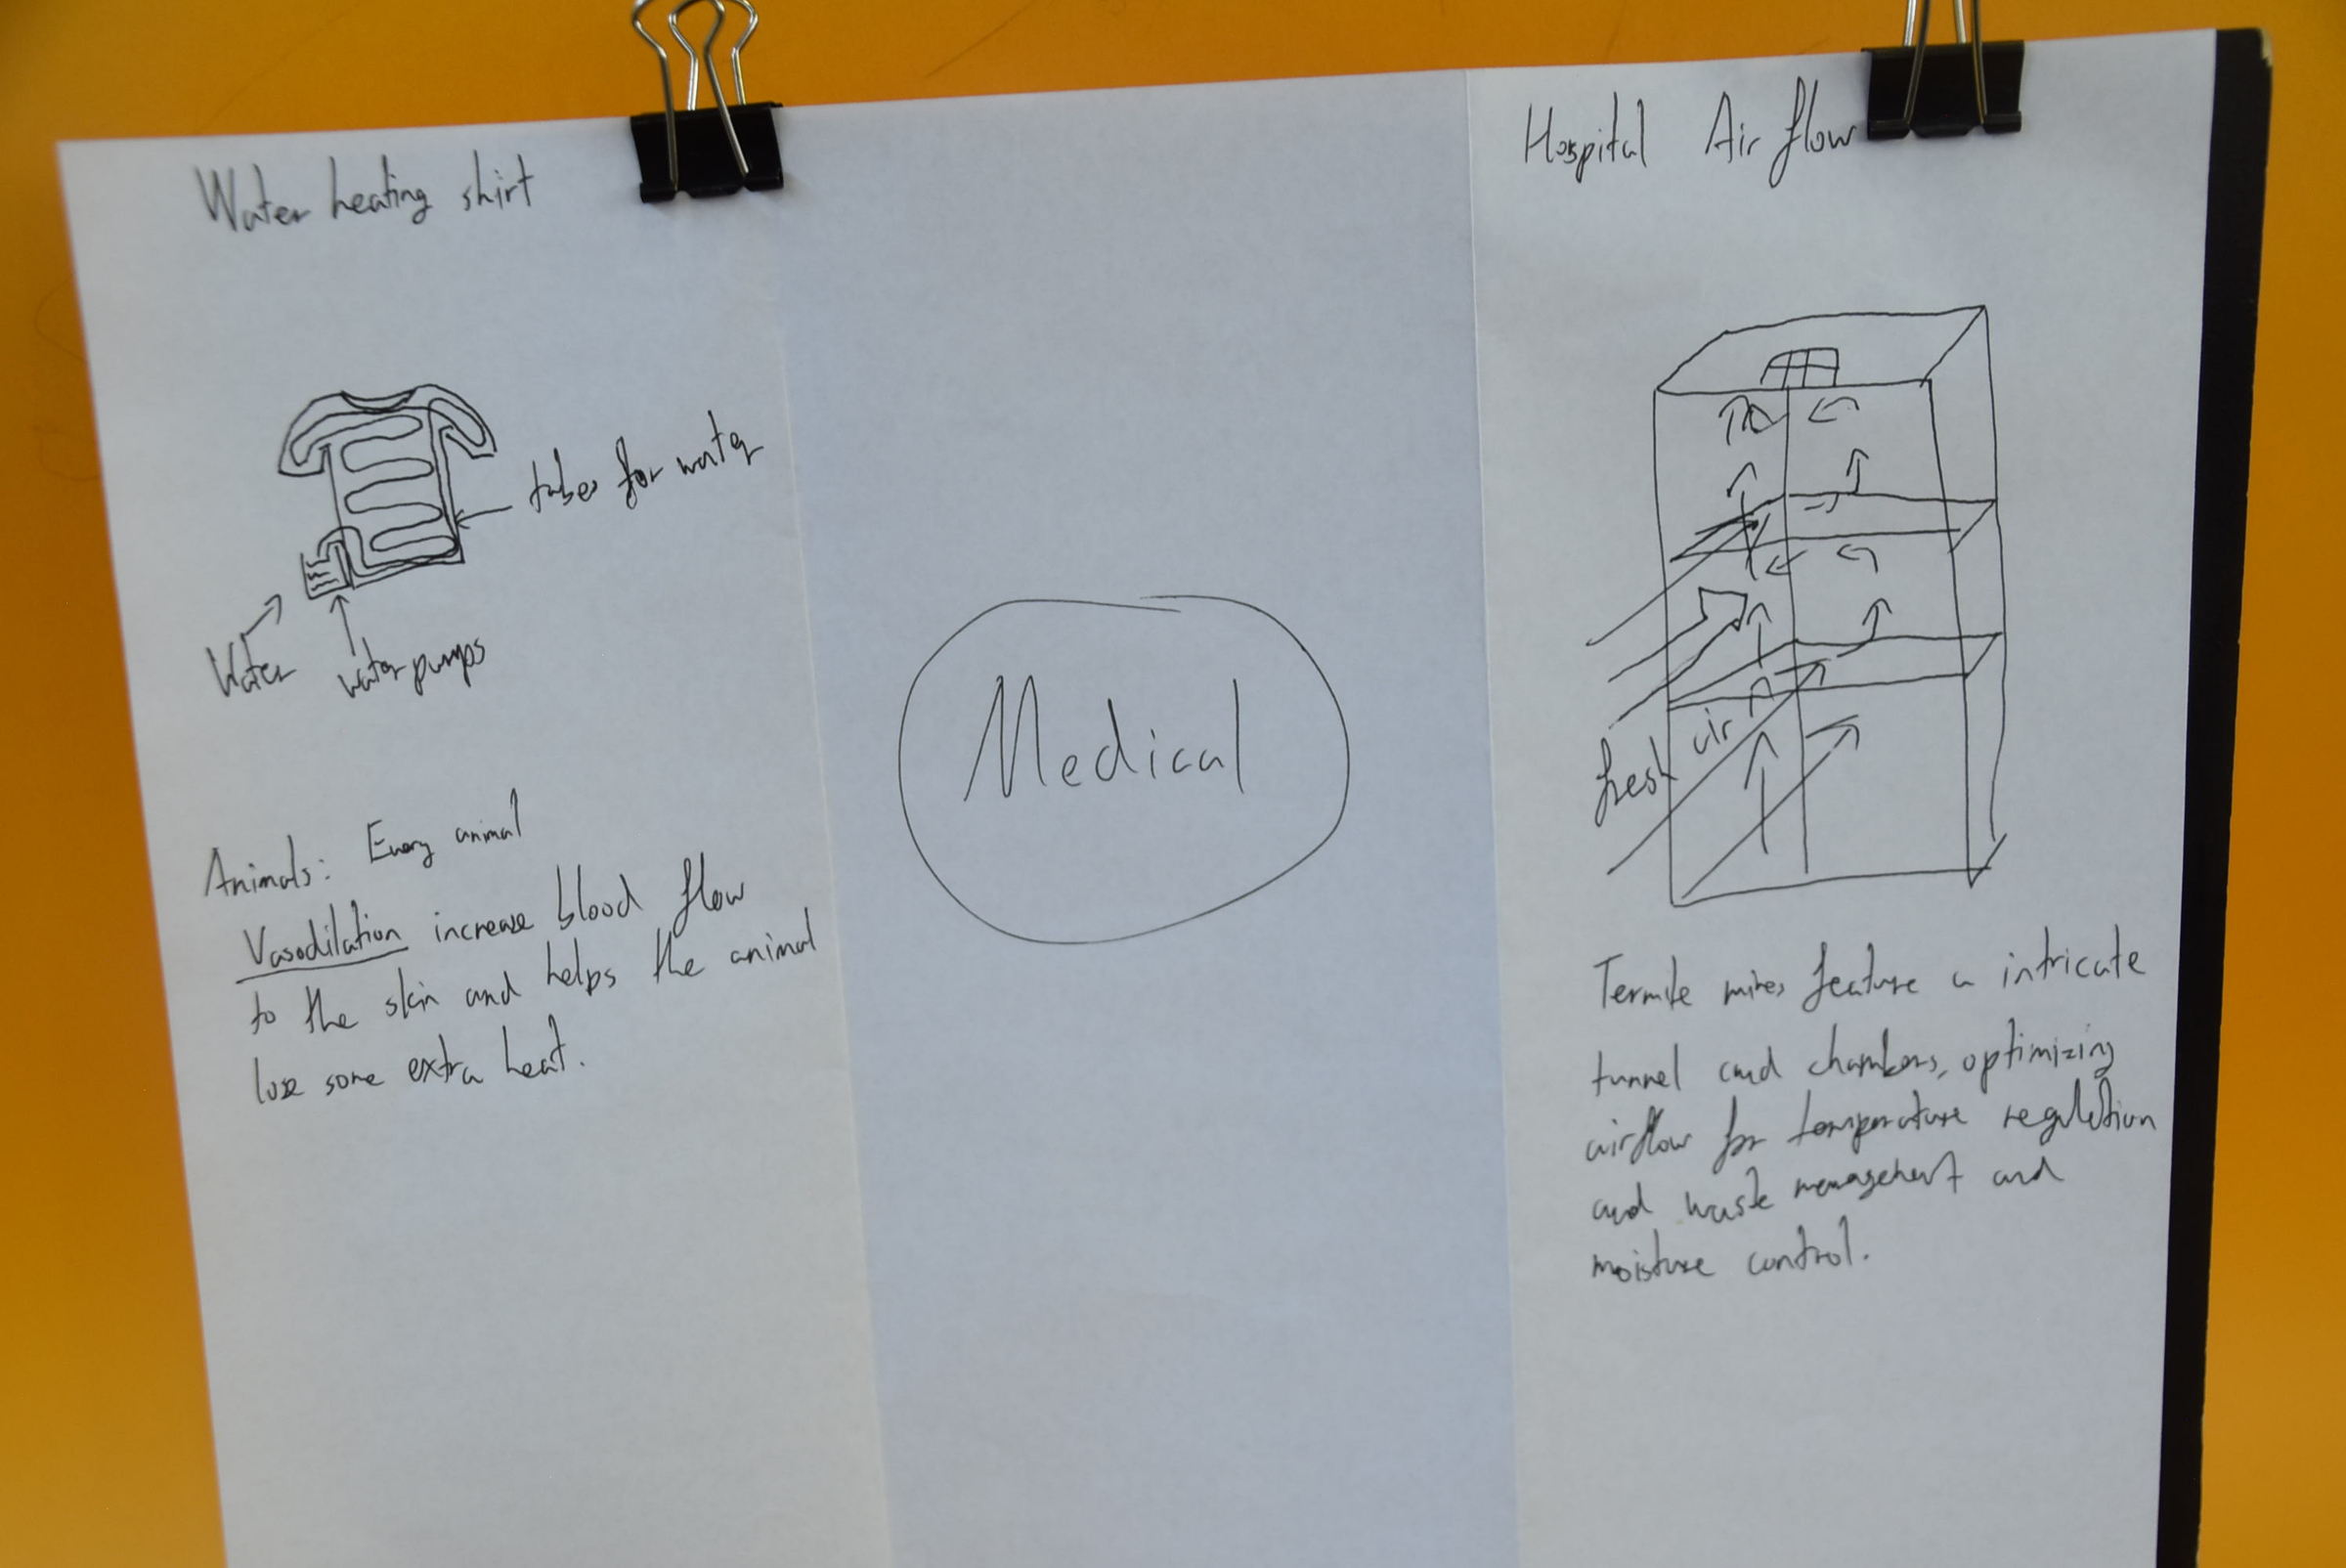 Water heating shirt
tubes for water
Water
water pumps
Animals: Every animal
Vasodilation increase blood flow
to the skin and helps the animal
lose some extra heat.
Medical
Hospital Air flow
fresh air
Termite mines feature a intricate
tunnel and chambers, optimizing
airflow for temperature regulation
and waste management and
moisture control.